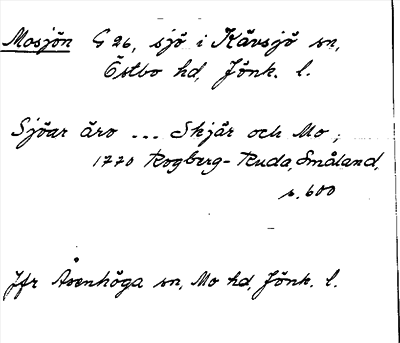 Mosjön G 26, sjö i Kävsjö sn,
Östbo hd, Jönk. l.
Sjöar äro ... Skjär och Mo;
1770 Rogberg-Ruda, Småland,
s. 600
Jfr Åsenhöga sn, Mo hd, Jönk. l.